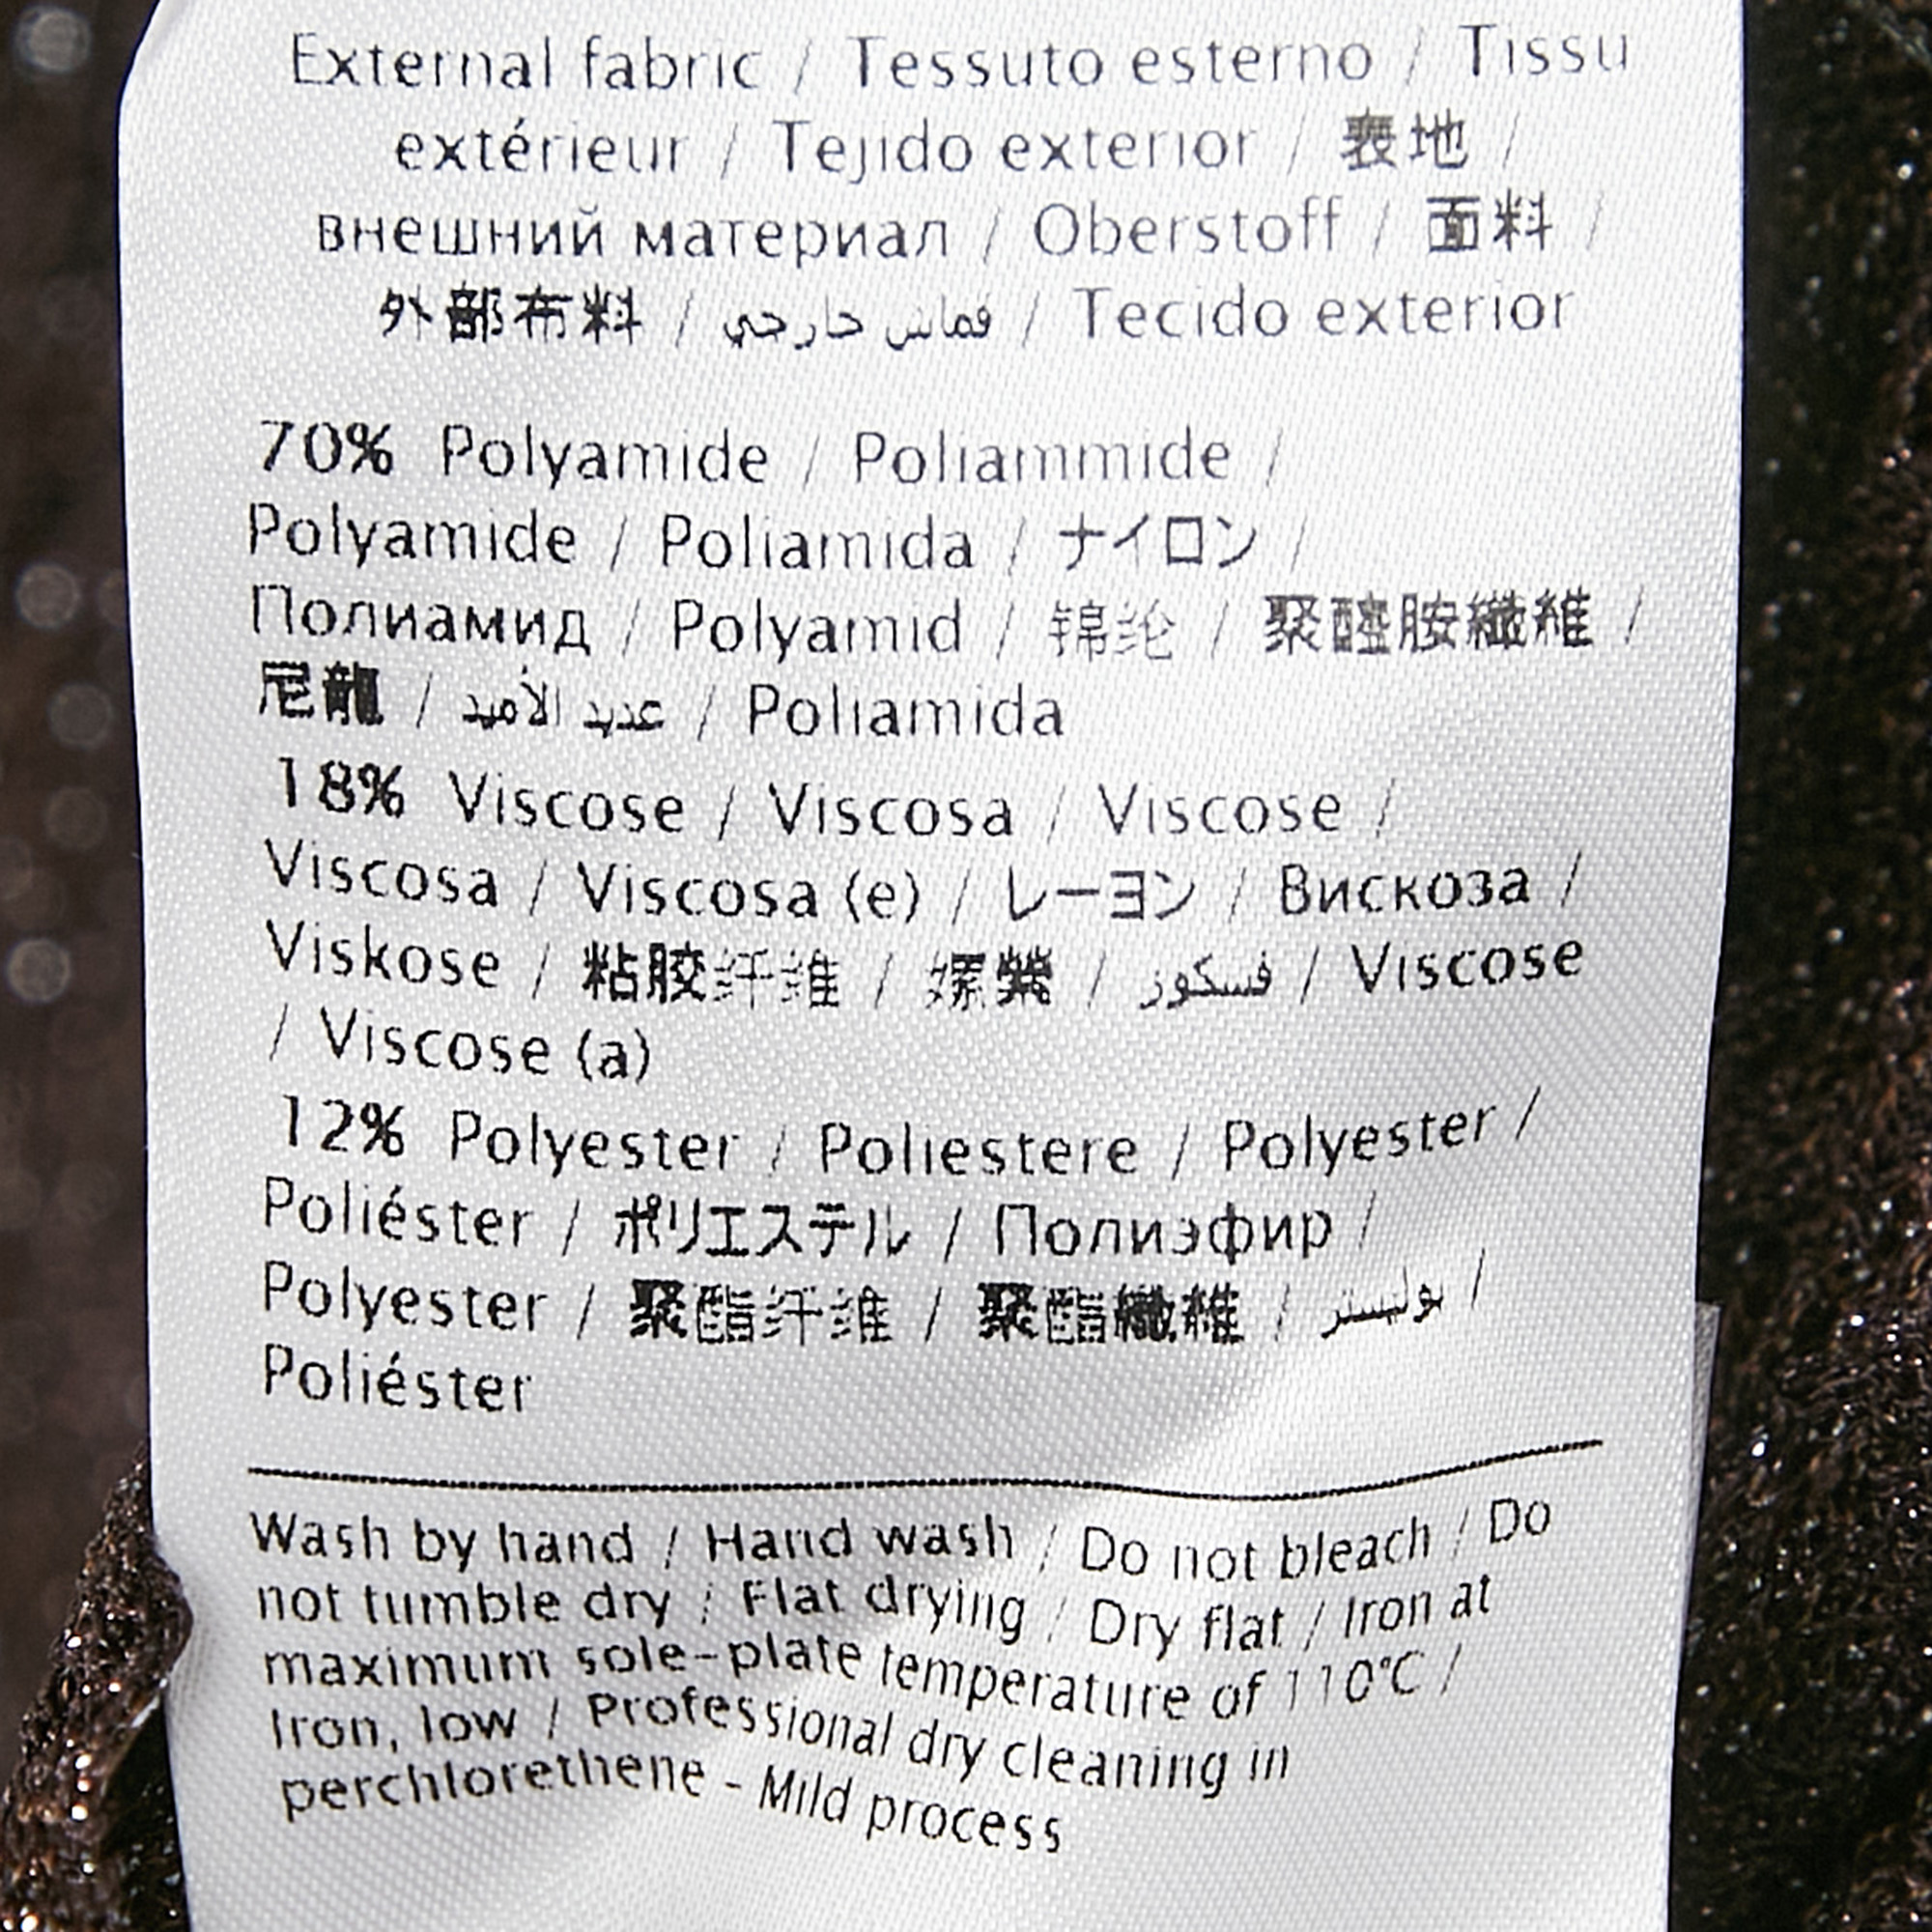 External fabric / Tessuto esterno / Tissu
extérieur / Tejido exterior / 表地 /
внешний материал / Oberstoff / 面料 /
外部布料 / قماش خارجي / Tecido exterior
70% Polyamide / Poliammide /
Polyamide / Poliamida / ナイロン /
Полиамид / Polyamid / 锦纶 / 聚醯胺纖維 /
尼龍 / عديد الأميد / Poliamida
18% Viscose / Viscosa / Viscose /
Viscosa / Viscosa (e) / レーヨン / Вискоза /
Viskose / 粘胶纤维 / 嫘縈 / فسكوز / Viscose
/ Viscose (a)
12% Polyester / Poliestere / Polyester /
Poliéster / ポリエステル / Полиэфир /
Polyester / 聚酯纤维 / 聚酯纖維 / بوليستر /
Poliéster
Wash by hand / Hand wash / Do not bleach / Do
not tumble dry / Flat drying / Dry flat / Iron at
maximum sole-plate temperature of 110°C /
Iron, low / Professional dry cleaning in
perchlorethene - Mild process